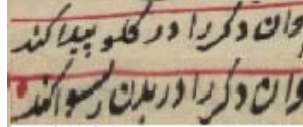 وان دکر را در کلو پیدا کند
وان دکر را در بدن رسوا کند